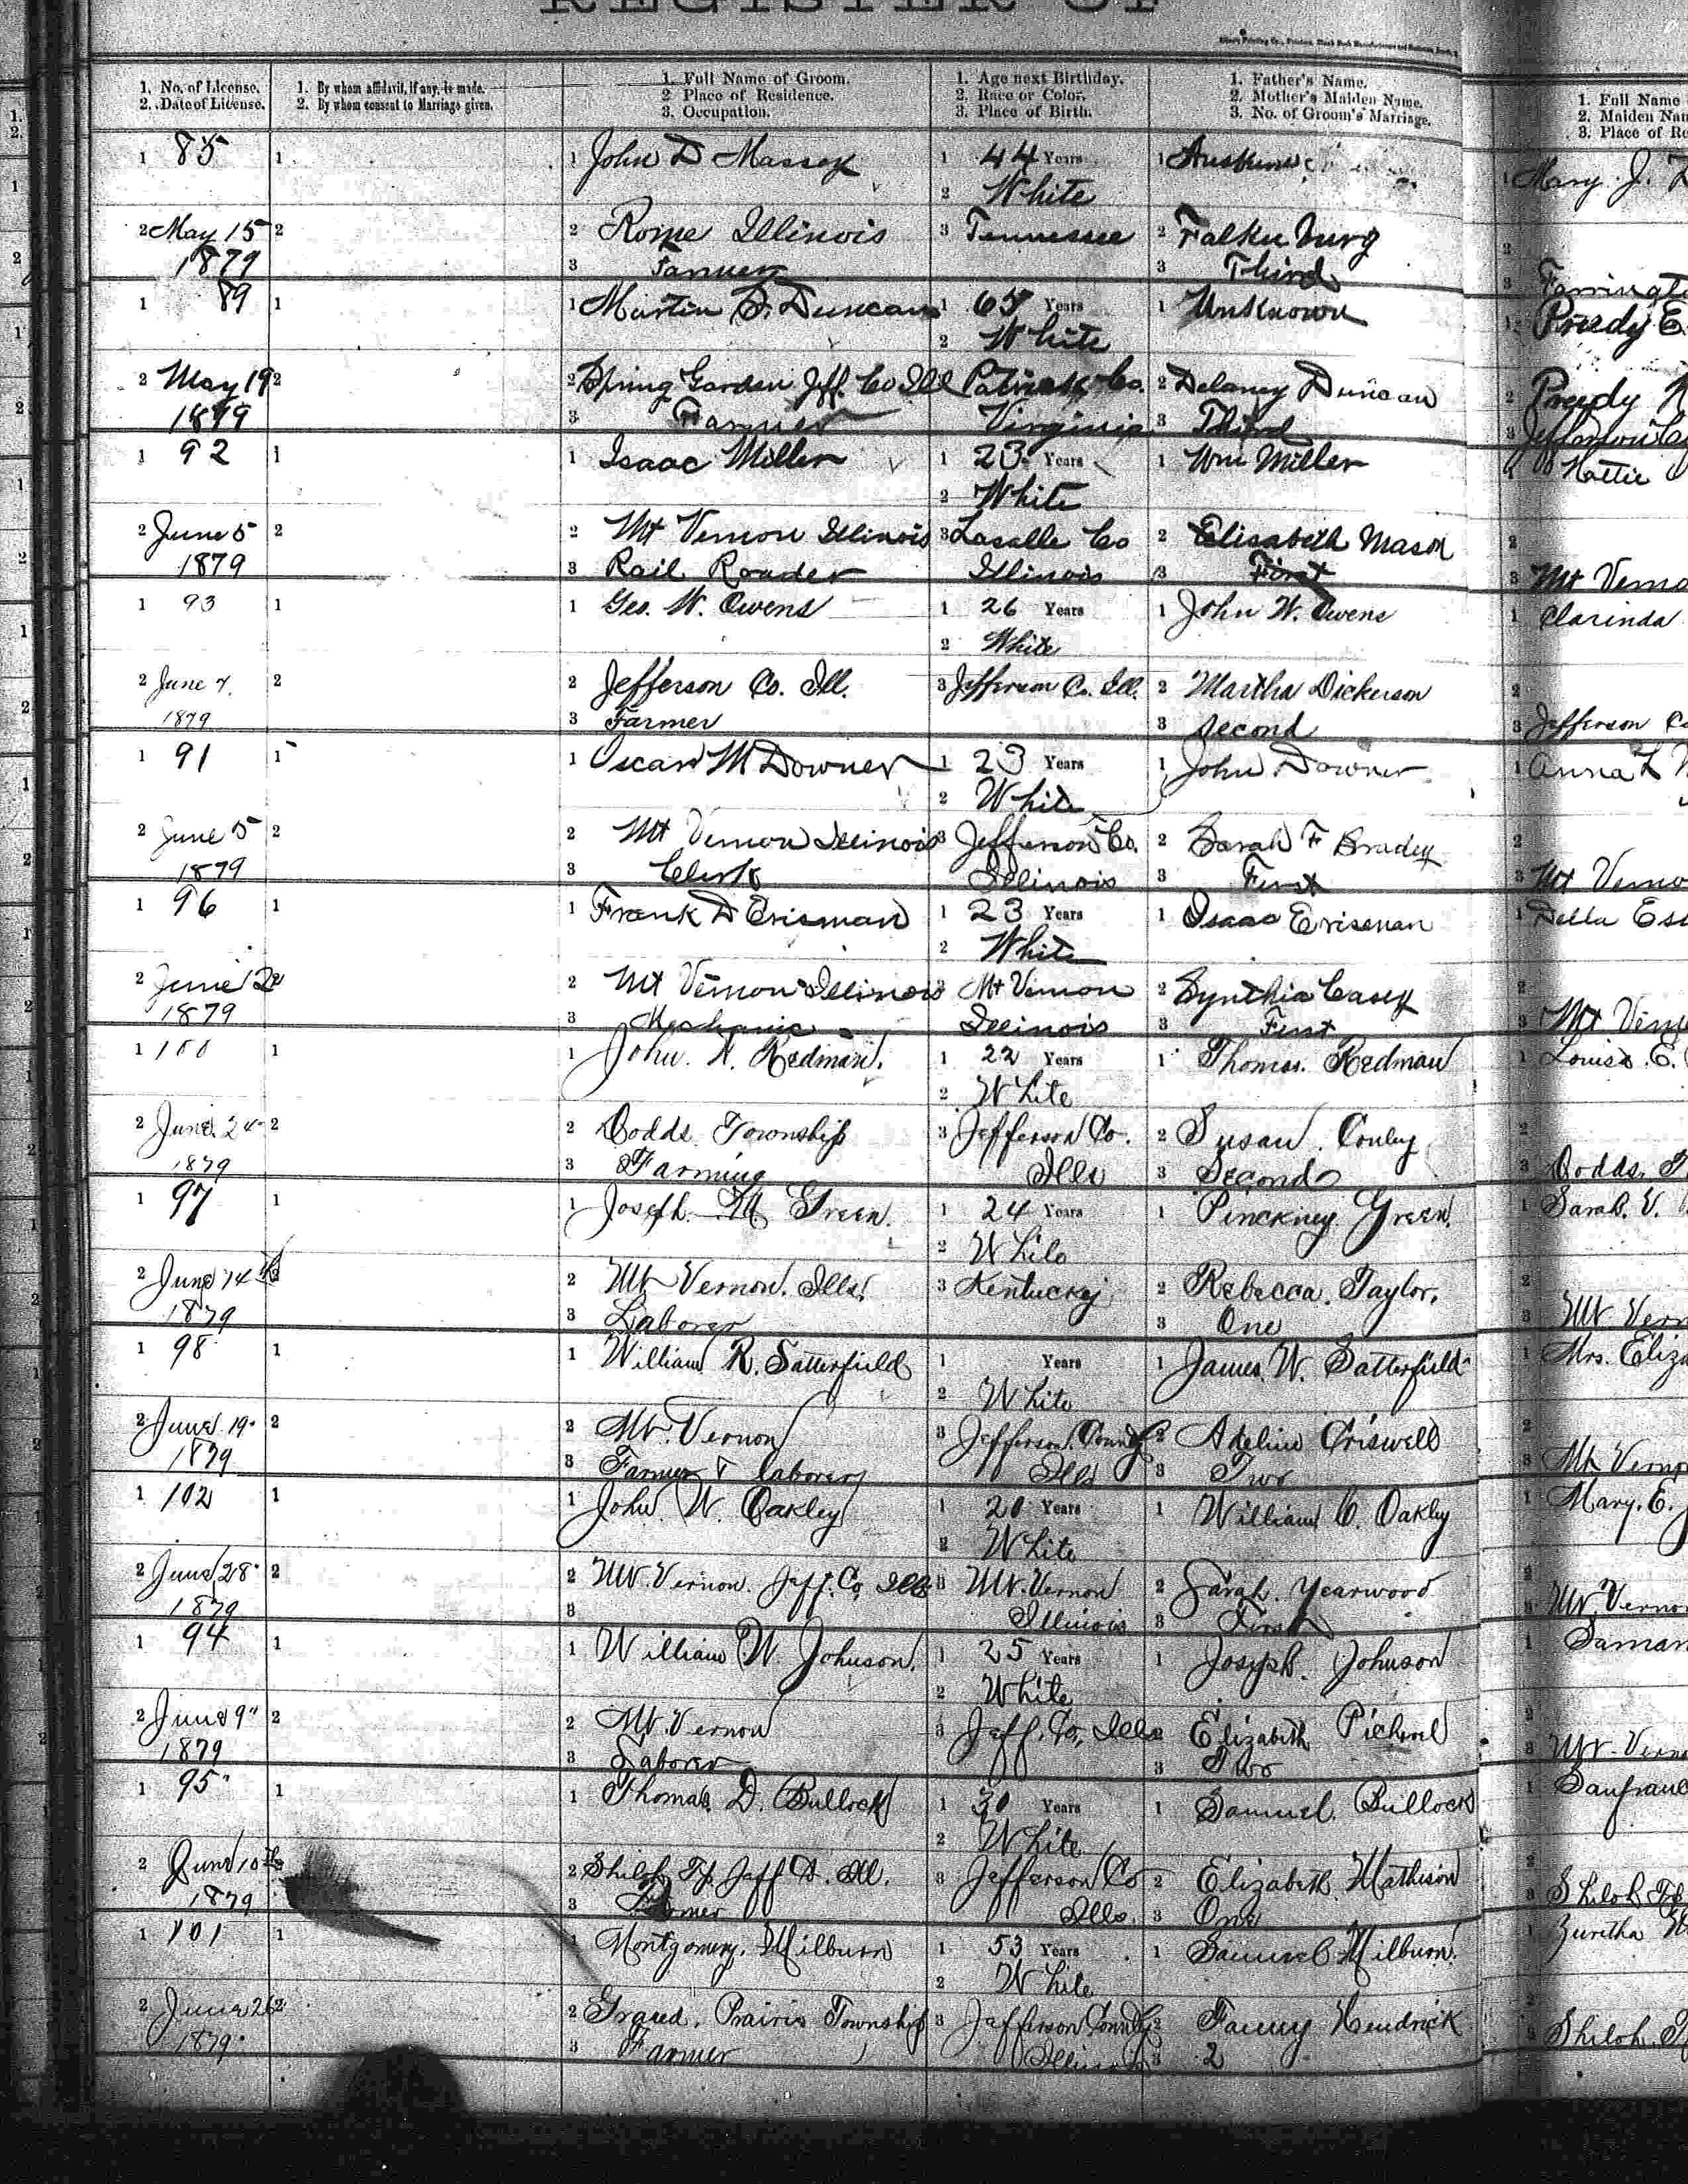 REGISTER OF
1. No. of License.
2. Date of License.
1. By whom affidavit, if any, is made.
2. By whom consent to Marriage given.
1. Full Name of Groom.
2 Place of Residence.
3. Occupation.
1. Age next Birthday.
2. Race or Color.
3. Place of Birth.
1. Father's Name.
2. Mother's Maiden Name.
3. No. of Groom's Marriage.
1. Full Name
2. Maiden
3. Place of
1 85 1 1 John D Massey 1 44 Years 1 Mary. J.
2 White
2 May 15 2 2 Rome Illinois 3 Tennessee 2
1879 3 Farmer 3 Third 3
1 89 1 1 Martin Duncan 1 65 Years 1 Unknown 1
2 White
2 May 19 2 2 Spring Garden Jeff. Co Ill Patrick Co. 2 Delaney Duncan 2
1879 3 Farmer Virginia 3 Third 3
1 92 1 1 Isaac Miller 1 23 Years 1 Wm Miller 1 Hattie
2 White
2 June 5 2 2 Mt Vernon Illinois 3 Lasalle Co 2 Elisabeth Mason 2
1879 3 Rail Roader Illinois 3 First 3 Mt
1 93 1 1 Geo. W. Owens 1 26 Years 1 John W. Owens 1 Clarinda
2 White
2 June 7. 2 2 Jefferson Co. Ill. 3 Jefferson Co. Ill. 2 Martha Dickerson 2
1879 3 Farmer 3 Second 3 Jefferson
1 91 1 1 Oscar M Downer 1 23 Years 1 John Downer 1 Anna L
2 White
2 June 5 2 2 Mt Vernon Illinois 3 Jefferson Co. 2 Sarah F Bradey 2
1879 3 Clerk Illinois 3 First 3 Mt
1 96 1 1 Frank D Erisman 1 23 Years 1 Isaac Erisman 1 Della
2 White
2 June 2 2 Mt Vernon Illinois 3 Mt Vernon 2 Synthia Casey 2
1879 3 Mechanic Illinois 3 First 3 Mt
1 100 1 1 John. Redman. 1 22 Years 1 Thomas. Redman 1 Louisa. E.
2 White
2 June. 24 2 2 Dodds. Township 3 Jefferson Co. 2 Susan. Conley 2
1879 3 Farming Ills 3 Second 3 Dodds.
1 97 1 1 Joseph. M Green. 1 24 Years 1 Pinckney Green. 1 Sarah. V.
2 White
2 June 14 2 2 Mt Vernon. Ills. 3 Kentucky 2 Rebecca. Taylor. 2
1879 3 Laborer 3 One 3 Mt
1 98 1 1 William R. Satterfield 1 Years 1 James. W. Satterfield 1 Mrs.
2 White
2 June 19 2 2 Mt. Vernon 3 Jefferson. County 2 Adeline Criswell 2
1879 3 Farmer & laborer Ills 3 Two 3 Mt
1 102 1 1 John. W. Oakley 1 20 Years 1 William C. Oakley 1 Mary. E.
2 White
2 June 28 2 2 Mt. Vernon. Jeff. Co, Ills 3 Mt. Vernon 2 Sarah. Yearwood 2
1879 3 Illinois 3 First 3 Mt
1 94 1 1 William W. Johnson. 1 25 Years 1 Joseph. Johnson 1
2 White
2 June 9 2 2 Mt. Vernon 3 Jeff. Co, Ills 2 Elizabeth 2
1879 3 Laborer 3 Two 3 Mt.
1 95 1 1 Thomas. D. Bullock 1 30 Years 1 Samuel. Bullock 1
2 White
2 June 10th 2 Shiloh Tp Jeff Co. Ill. 3 Jefferson Co 2 Elizabeth Mathison 2
1879 3 Farmer Ills. 3 One 3 Shiloh
1 101 1 1 Montgomery. Milburn 1 53 Years 1 Samuel Milburn. 1 Zuritha
2 White
2 June 26 2 2 Grand. Prairie Township 3 Jefferson County 2 Fanny Hendrick 2
1879 3 Farmer Illinois 3 2 3 Shiloh.